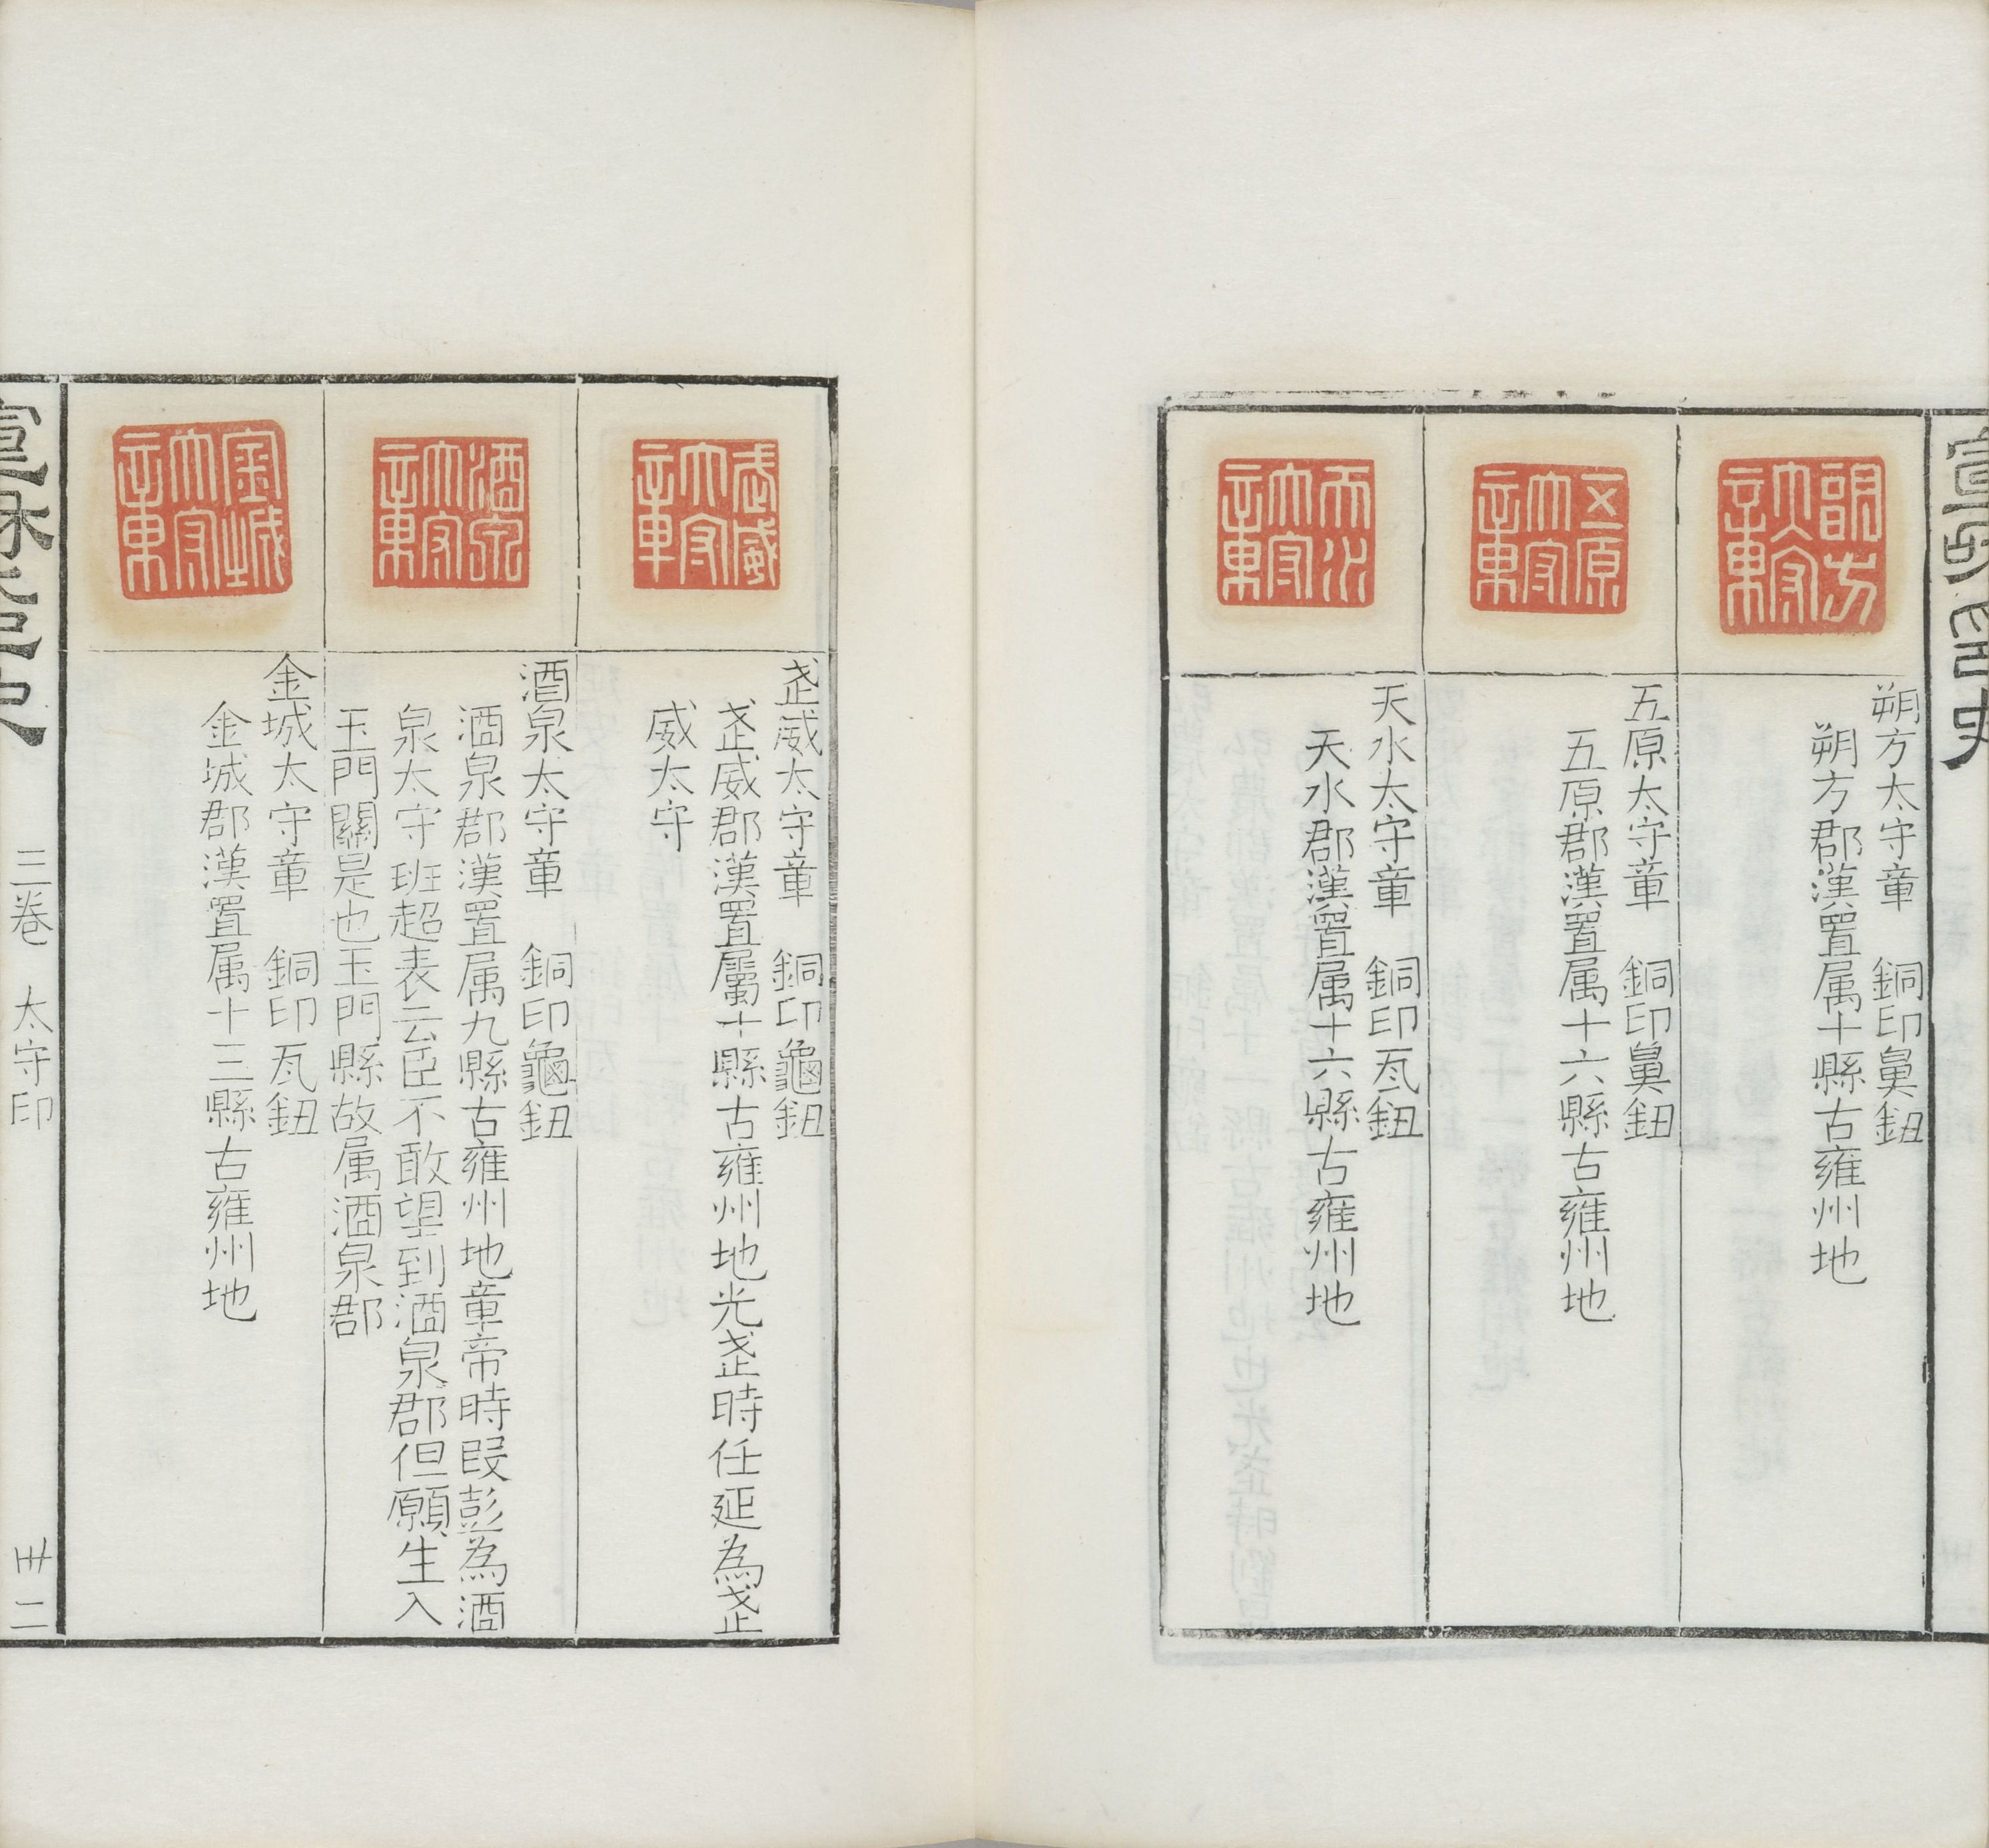 朔方太守章
朔方太守章　銅印鼻鈕
朔方郡漢置属十縣古雍州地
五原太守章
五原太守章　銅印鼻鈕
五原郡漢置属十六縣古雍州地
天水太守章
天水太守章　銅印瓦鈕
天水郡漢置属十六縣古雍州地
武威太守章
武威太守章　銅印龜鈕
武威郡漢置屬十縣古雍州地光武時任延為武
威太守
酒泉太守章
酒泉太守章　銅印龜鈕
酒泉郡漢置属九縣古雍州地章帝時段彭為酒
泉太守班超表云臣不敢望到酒泉郡但願生入
玉門關是也玉門縣故属酒泉郡
金城太守章
金城太守章　銅印瓦鈕
金城郡漢置属十三縣古雍州地
三卷　太守印　卅二